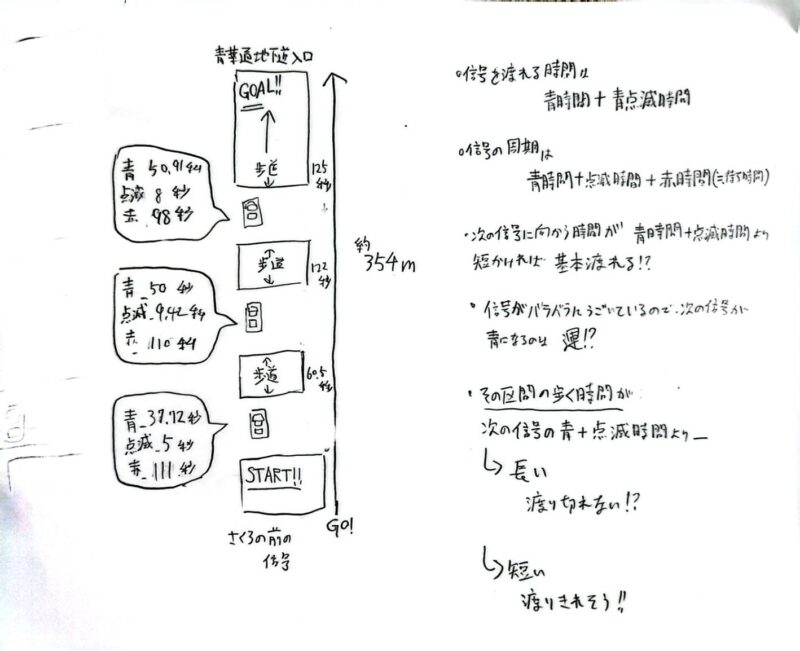 青華通地下道入口
GOAL!!
歩道
125
秒
青 50.91秒
点滅 8 秒
赤 98秒
歩道
122
秒
約
354m
青_50秒
点滅_9.42秒
赤_110秒
歩道
60.5
秒
青_37.72秒
点滅_5秒
赤_111秒
START!!
GO!
さくろの前の
信号
○信号を渡れる時間は
青時間+青点滅時間
○信号の周期は
青時間+点滅時間+赤時間(=待ち時間)
・次の信号に向かう時間が 青時間+点滅時間より
短かければ 基本渡れる!?
・信号がバラバラにうごいているので、次の信号が
青になるのは 運!?
・その区間の歩く時間が
次の信号の青+点滅時間より_
↳ 長い
渡り切れない!?
↳ 短い
渡りきれそう!!